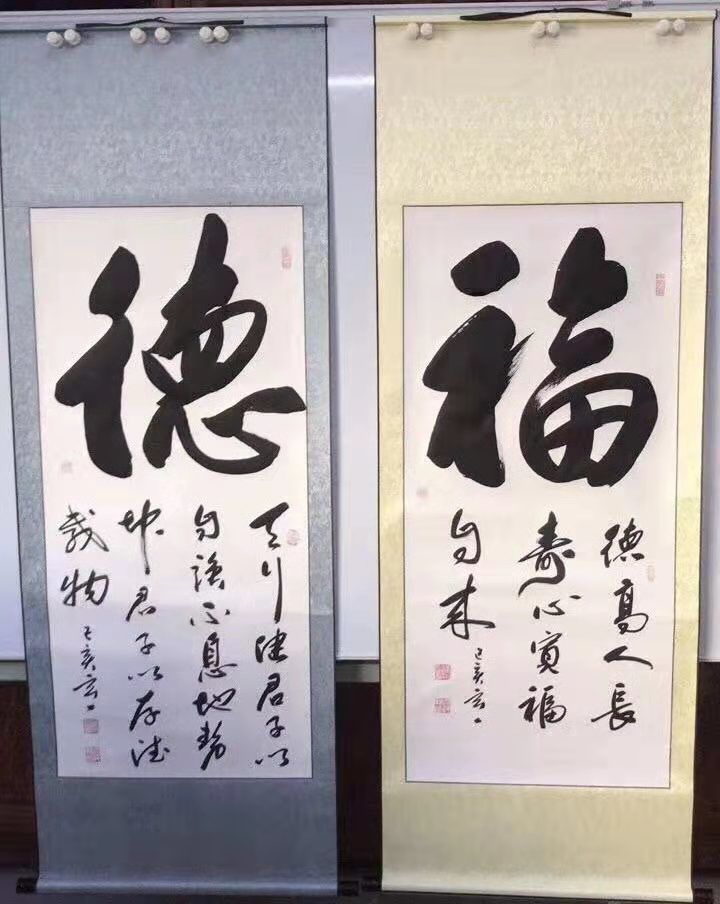 德
天行健君子以
自強不息地勢
坤君子以厚德
載物
己亥玄一
福
德高人長
壽心寬福
自来
己亥玄一